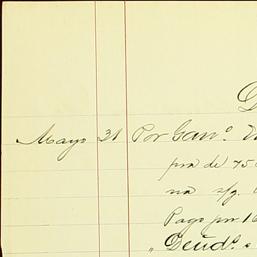 Mayo 31 Por Gan.º
pra de 75
na s/g.
Pago por 16
" Deud.º a